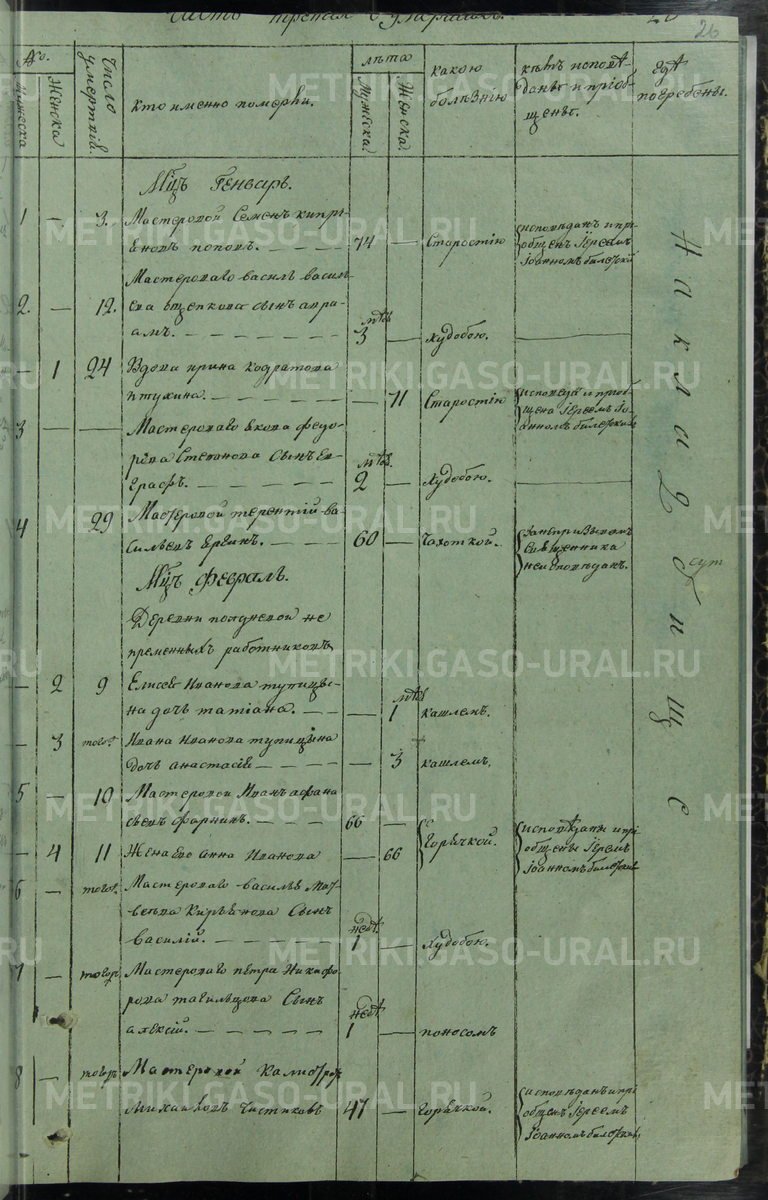 Часть третия о умерших.
26
No.
Мужеска
Женска
Число умертвій.
кто именно померли.
лѣта
Мужеска.
Женска.
какою
болѣзнію
кѣмъ исповѣ-
даны и пріоб-
щены.
гдѣ
погребены.
Мцъ Генварь.
1 — 3. Мастеровой Семенъ кипрі-
яновъ поповъ. — — — — 74 — Старостію исповѣданъ и прі-
общенъ Іереемъ
Іоанномъ
Мастероваго василья василь-
2. — 12. ева сынъ авра-
амъ. — — — — мѣс 3 — худобою.
— 1 24 Вдова ирина кодратова
птухина. — — — — — 71 Старостію исповѣда и пріоб-
щена Іереемъ Іо-
анномъ
3 — — Мастероваго якова федо-
рова Степанова сынъ ев-
графъ. — — — — мѣс. 2 — худобою.
4 29 Мастеровой терентій ва-
сильевъ — — — 60 — Чахоткой.
священника
неисповѣданъ.
Мцъ Февраль.
Деревни полдневой не
премѣнныхъ работниковъ
— 2 9 Елисея Иванова тупицы-
на дочь татіана. — — — мѣс 1 кашлемъ.
— 3 того. Ивана Иванова тупицына
дочь анастасія — — — — — 3 кашлемъ.
5 — 10 Мастеровой Иванъ афана
сьевъ — — — 66 —
Горячкой. исповѣданы и прі-
общены Іереемъ
Іоанномъ
— 4 11 Жена ево анна Иванова — 66
6 — того. Мастероваго василья
Сынъ
василій. — — — — нед. 1 — худобою.
7 — того. Мастероваго петра Никифо-
рова тагильцова Сынъ
алексій. — — — — нед. 1 — поносомъ
8 — того. Мастеровой
Михайловъ Чистяковъ 47 — горячкой. исповѣданъ и прі-
общенъ Іереемъ
Іоанномъ
На кладбище
METRIKI.GASO-URAL.RU